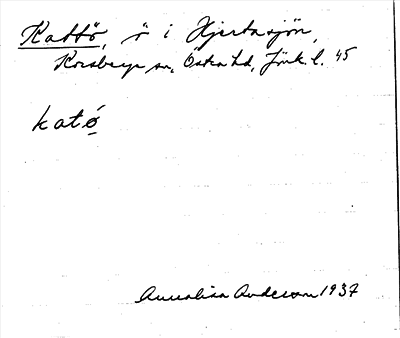 Kattö, ö i Hjertasjön,
Korsberga sn, Östra hd, Jönk. l. 45
katö
Annalisa Anderson 1937